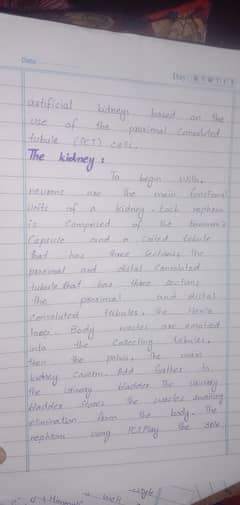 Date
Day
artificial kidneys based on the
use of the proximal convoluted
tubule (PCT) cells.
The kidney :
To begin with,
neurons are the main functional
units of a kidney. Each nephron
is composed of the bowman's
Capsule and a coiled tubule
that has three sections the
proximal and distal Convoluted
tubule that has three sections
the proximal and distal
convoluted tubules, the Henle
loop. Body wastes are emptied
into the Collecting tubules,
then the pelvis, the main
kidney cavern. And further to
the urinary bladder. The urinary
bladder stores the wastes awaiting
elimination from the body. The
nephrons the sole